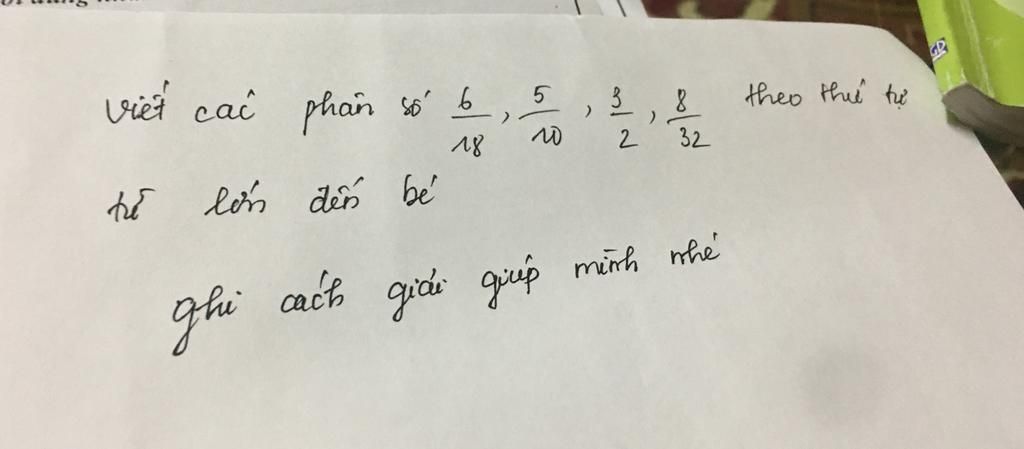 viết các phân số 6/18, 5/10, 3/2, 8/32 theo thứ tự
từ lớn đến bé
ghi cách giải giúp mình nhé